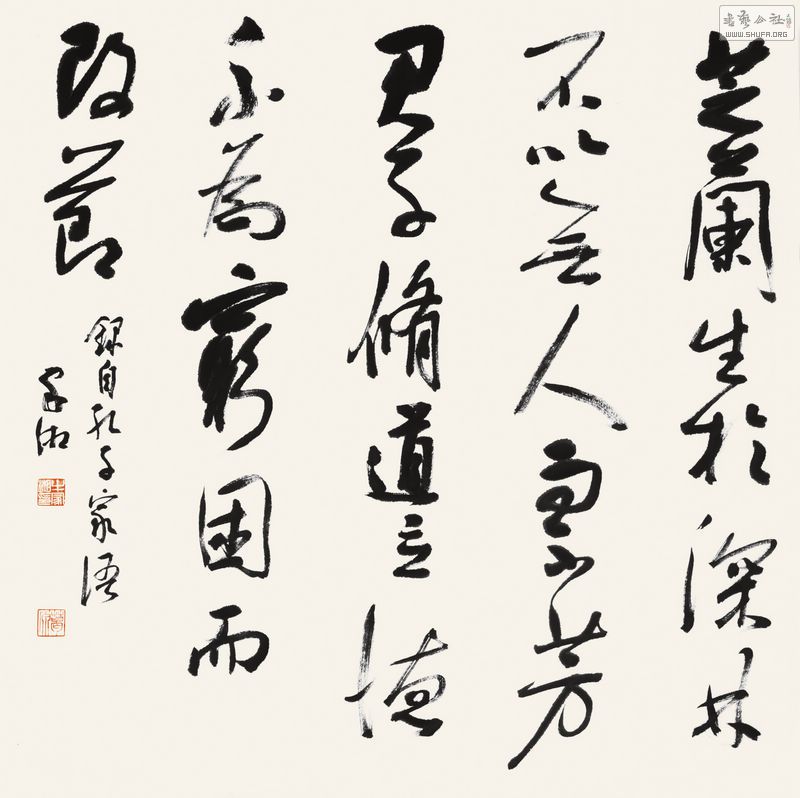 芝蘭生於深林
不以無人而不芳
君子脩道立德
不為窮困而
改節
錄自孔子家語
書藝公社
WWW.SHUFA.ORG